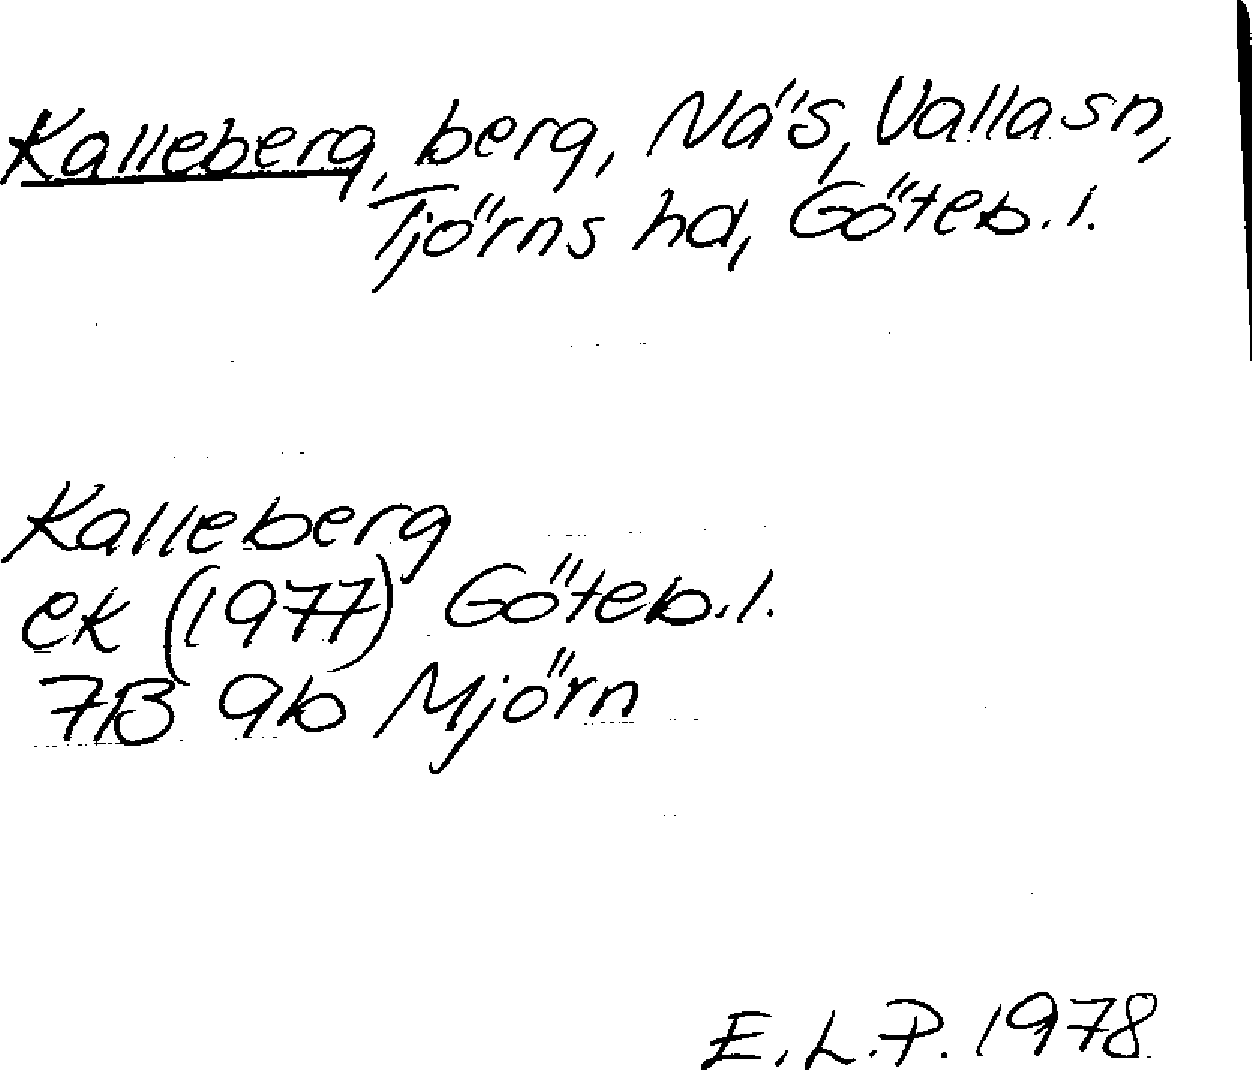 Kalleberg, berg, Näs, Valla sn,
Tjörns hd, Göteb. l.
Kalleberg
ek (1977) Göteb. l.
7B 9b Mjörn
E. L. P. 1978